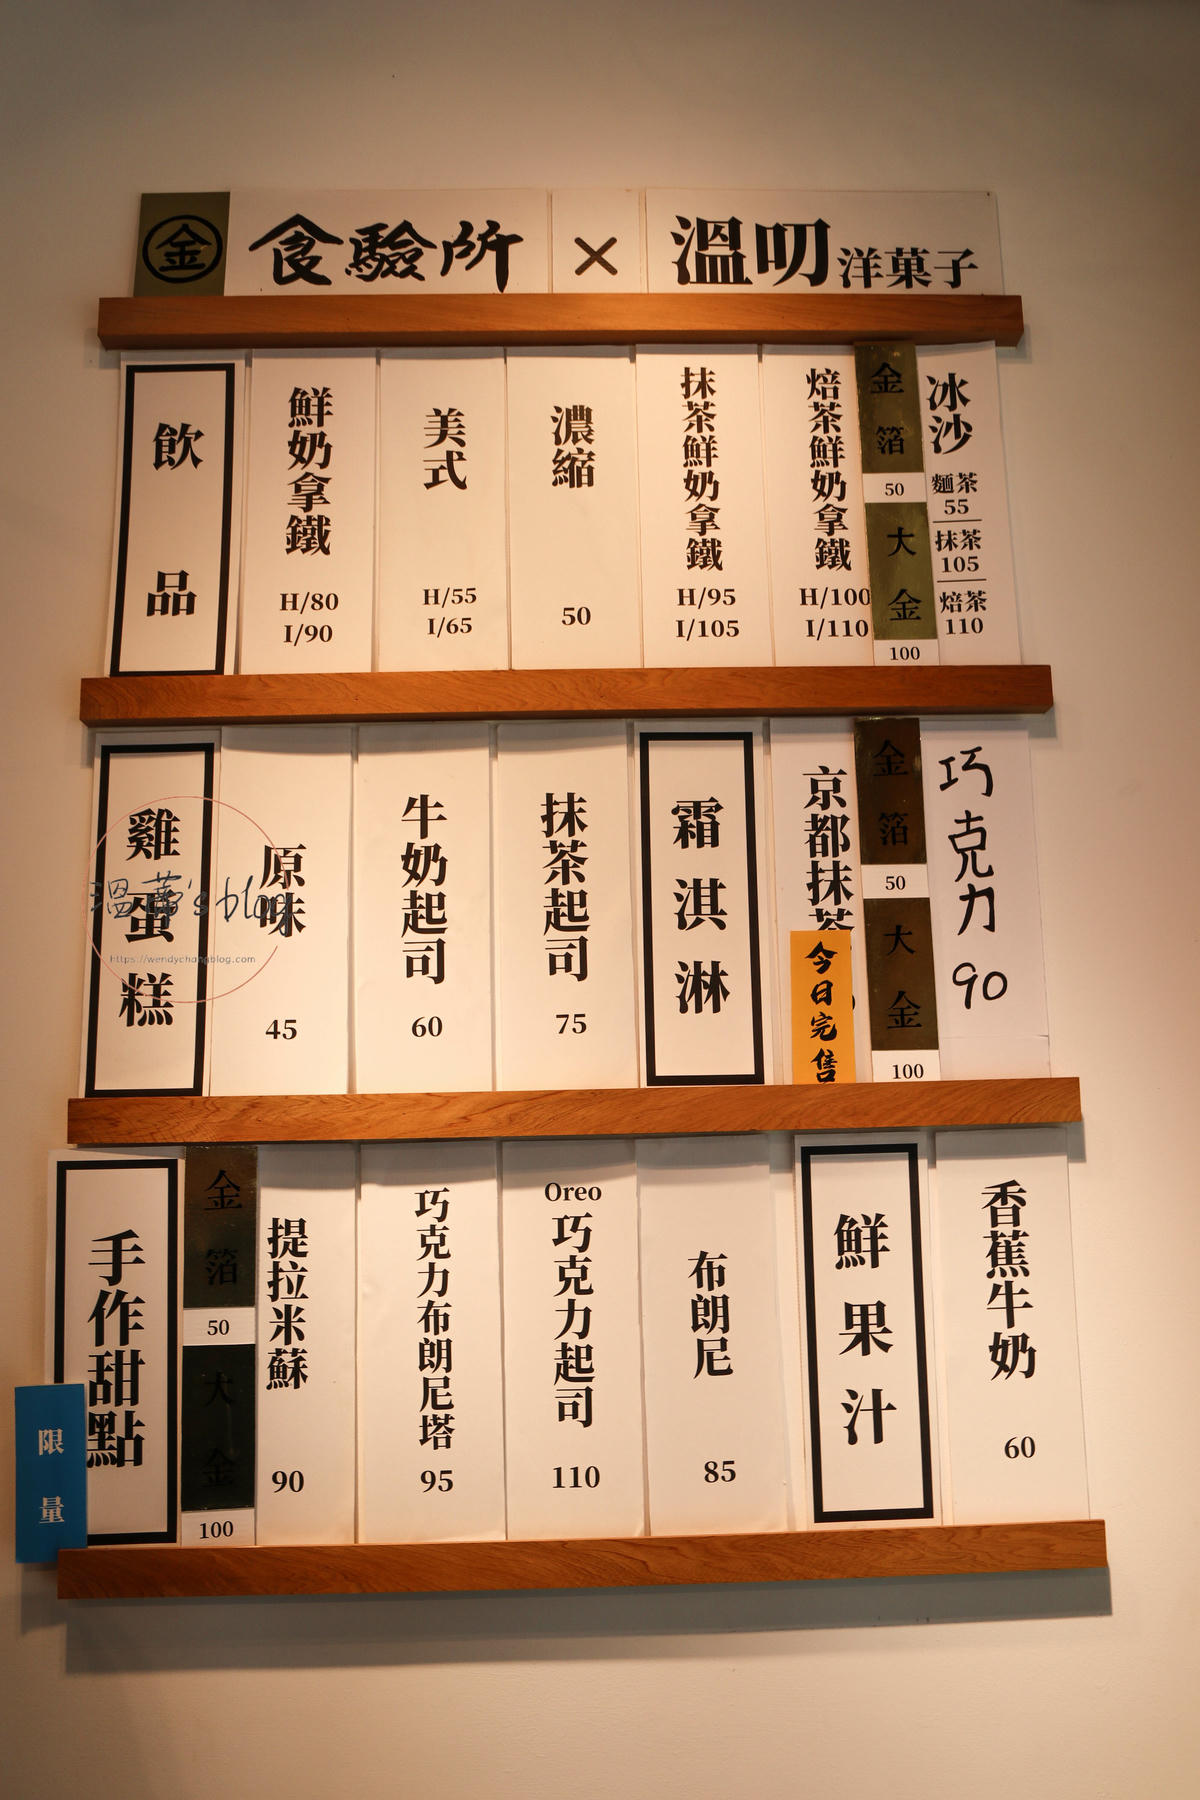 金 食驗所 × 溫叨 洋菓子
飲品
鮮奶拿鐵
H/80
I/90
美式
H/55
I/65
濃縮
50
抹茶鮮奶拿鐵
H/95
I/105
焙茶鮮奶拿鐵
H/100
I/110
金箔
50
大金
100
冰沙
麵茶
55
抹茶
105
焙茶
110
雞蛋糕
原味
45
牛奶起司
60
抹茶起司
75
霜淇淋
京都抹茶
今日完售
金箔
50
大金
100
巧克力
90
溫蒂's blog
https://wendychangblog.com
手作甜點
限量
金箔
50
大金
100
提拉米蘇
90
巧克力布朗尼塔
95
Oreo
巧克力起司
110
布朗尼
85
鮮果汁
香蕉牛奶
60